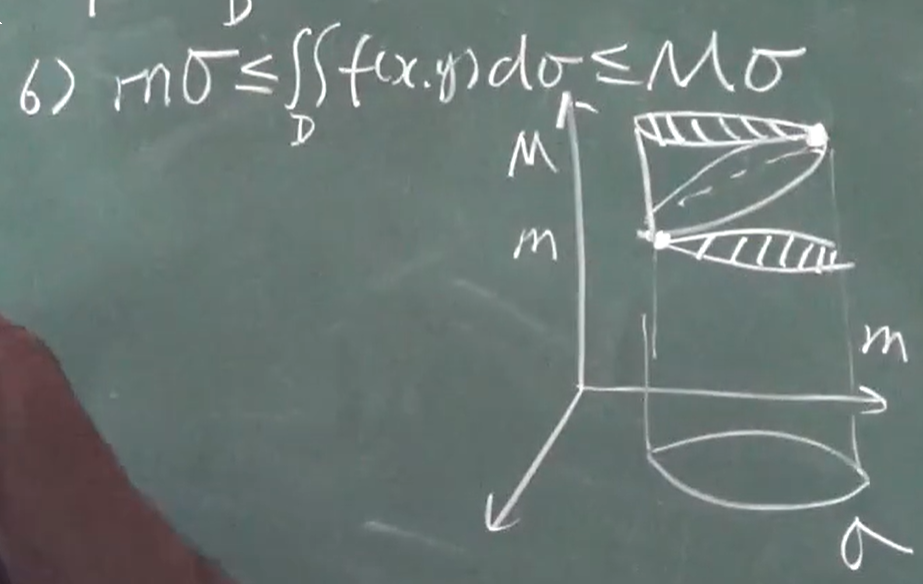 D
6) mσ≤∬f(x.y)dσ≤Mσ
D
M
m
m
σ